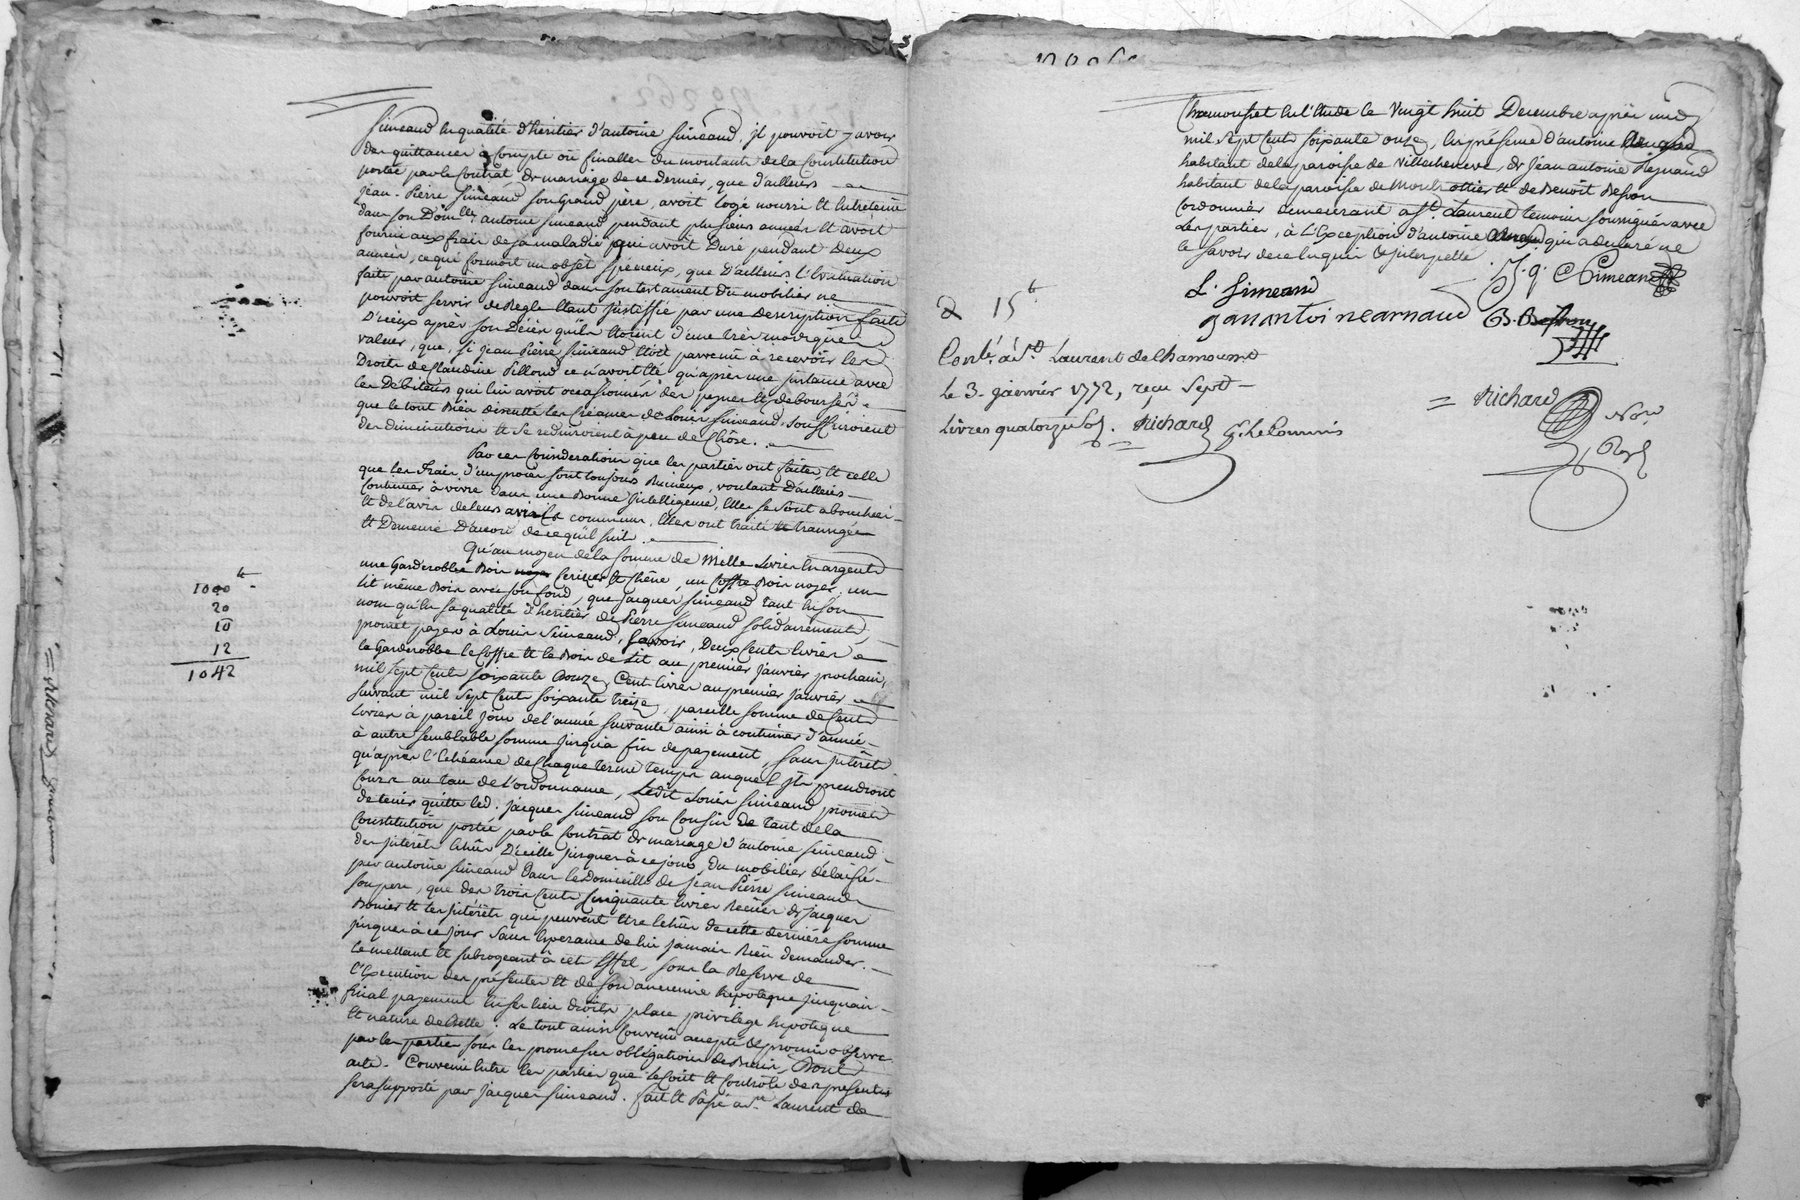 Simeand en qualité d'heritier d'antoine Simeand, il pouvoit y avoir
des quittances à Compte ou finalles du montant de la Constitution
portée par le Contrat de mariage de ce dernier, que d'ailleurs
jean-Pierre Simeand son Grand père, avoit logé nourri et entretenu
dans son Domlle antoine Simeand pendant plusieurs années et avoit
fourni aux frais de sa maladie qui avoit duré pendant deux
années, ce qui formoit un objet sérieux, que d'ailleurs l'Evaluation
faite par antoine Simeand dans son testament du mobilier ne
pouvoit servir de Regle étant justiffié par une Description faite
D'iceux après son Décès qu'ils étoient d'une très modique
valeur, que, si jean Pierre Simeand étoit parvenu à recevoir les
Droits de Claudine Pillond ce n'avoit été qu'après une instance avec
les Debiteurs qui lui avoit occasionnés des peynes et deboursés
que le tout Bien discutté les Créances de Louis Simeand souffriroient
des diminutions et se reduiroient à peu de Chose.
Par ces Considerations que les parties ont faites, et celle
que les Frais d'un procès sont toujours Ruineux, voulant d'ailleurs
Continuer à vivre dans une Bonne Intelligence, Elles se sont abouchées
et de l'avis de leurs amis communs, Elles ont traité et transigée
et Demeuré D'accord de ce qu'il suit.
Qu'au moyen de la Somme de Mille Livres En argent
une Garderobbe Bois Cerisier et Chêne, un Coffre Bois noyer, un
lit même Bois avec son fond, que Jacques Simeand tant En son
nom qu'En sa qualité d'heritier de Pierre Simeand solidairement,
promet payer à Louis Simeand, Savoir, Deux Cents livres
la Garderobbe le Coffre et le Bois de Lit au premier Janvier prochain,
mil sept Cents soixante Douze, Cent livres au premier Janvier
suivant mil sept Cents soixante treize, pareille somme de Cent
livres à pareil jour de l'année suivante ainsi à continuer d'année
à autre semblable somme jusqu'à fin de payement, sans intérêts
qu'après l'Echéance de Chaque terme temps auquel ils prendront
Cours au taux de l'ordonnance, Ledit Louis Simeand promet
de tenir quitte led. Jacques Simeand son Cousin de tant de la
Constitution portée par le Contrat de mariage d'antoine Simeand
des intérêts Echus D'icelle jusques à ce jour, du mobilier délaissé
par antoine Simeand Dans le Domicille de Jean Pierre Simeand
son pere, que des trois Cents Cinquante livres Reçues de Jacques
Bonier et les intérêts qui peuvent Etre Echus de cette derniere somme
jusques à ce jour sans Esperance de lui jamais Rien demander.
Le mettant et subrogeant à cet Effet, sous la Reserve de
l'Execution des présentes et de son ancienne hipoteque jusqu'au
final payement En ses lieu droits place privilege hipoteque
et nature de Dette; Le tout ainsi Convenu accepté et promis observer
par les parties sous les promesses obligations de Biens, Dont
acte. Convenu Entre les parties que le Coût et Controle des presentes
sera supporté par Jacques Simeand. fait et Passé a St. Laurent de
1000lt
20
10
12
1042
Chamousset En l'Etude le Vingt huit Decembre après midy
mil sept Cent soixante onze, En présence d'antoine
habitant de la paroisse de Villechenève, de Jean antoine Reynaud
habitant de la paroisse de Montrottier et de Benoit Besson
Cordonnier demeurant a St. Laurent temoins soussignés avec
Les parties, à l'Exception d'antoine qui a declaré ne
le savoir de ce Enquis et Interpellé.
L. Simeand
J. q. Simeand
janantoinearnaud
B. Besson
2 15lt
Conlé. à St. Laurent de Chamousset
Le 3. janvier 1772, reçu Sept
livres quatorze sols. Richard
Richard
Nore
Royl